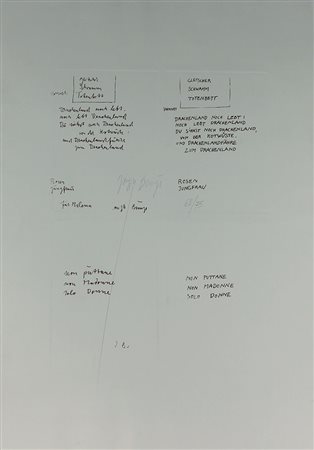 Gletscher
Schwamm
Totenbett
Drachenland noch lebt!
noch lebt Drachenland
Du sinkst noch Drachenland
in der Kotwüste
und Drachenlandfähre
zum Drachenland
GLETSCHER
SCHWAMM
TOTENBETT
DRACHENLAND NOCH LEBT!
NOCH LEBT DRACHENLAND
DU SINKST NOCH DRACHENLAND,
VON DER KOTWÜSTE,
UND DRACHENLANDFÄHRE
ZUM DRACHENLAND
Rosen
Jungfrau
ROSEN
JUNGFRAU
für
non puttane
non Madonne
solo Donne
NON PUTTANE
NON MADONNE
SOLO DONNE
J B.